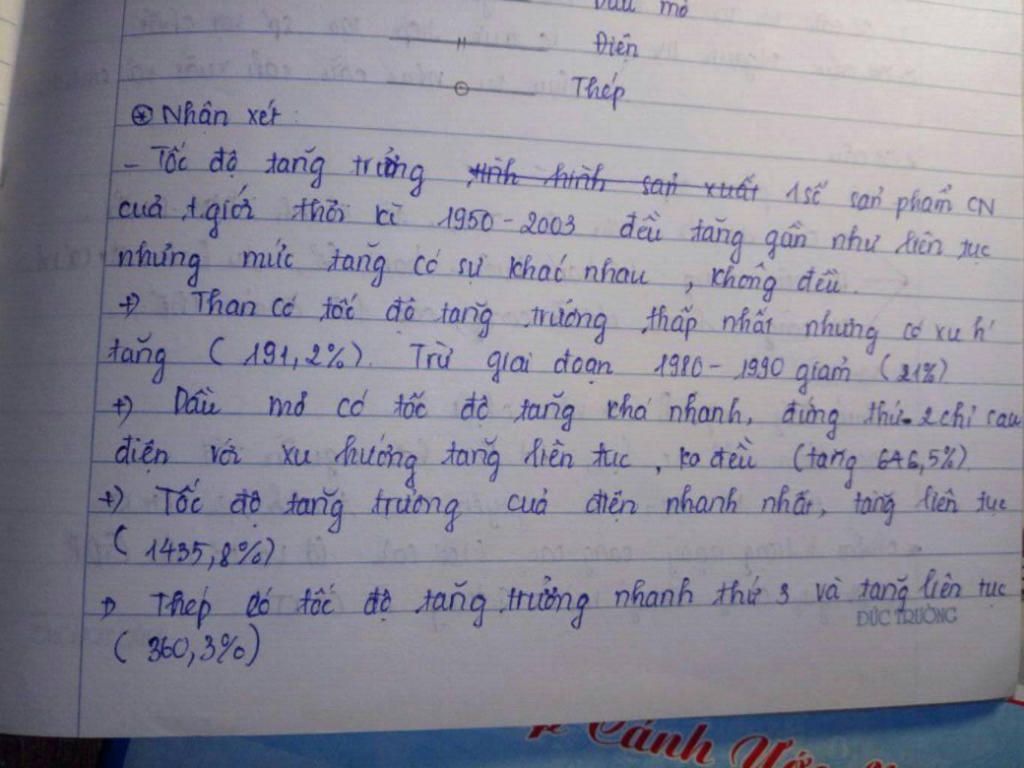 Dầu mỏ
" Điện
Thép
⊛ Nhận xét:
- Tốc độ tăng trưởng tình hình sản xuất 1 số sản phẩm CN
của t.giới thời kì 1950 - 2003 đều tăng gần như liên tục
nhưng mức tăng có sự khác nhau, không đều.
+) Than có tốc độ tăng trưởng thấp nhất nhưng có xu h'
tăng (191,2%). Trừ giai đoạn 1980 - 1990 giảm (21%)
+) Dầu mỏ có tốc độ tăng khá nhanh, đứng thứ 2 chỉ sau
điện với xu hướng tăng liên tục, ko đều (tăng 646,5%)
+) Tốc độ tăng trưởng của điện nhanh nhất, tăng liên tục
(1435,8%)
+) Thép có tốc độ tăng trưởng nhanh thứ 3 và tăng liên tục
ĐỨC TRƯỜNG
(360,3%)
Cánh